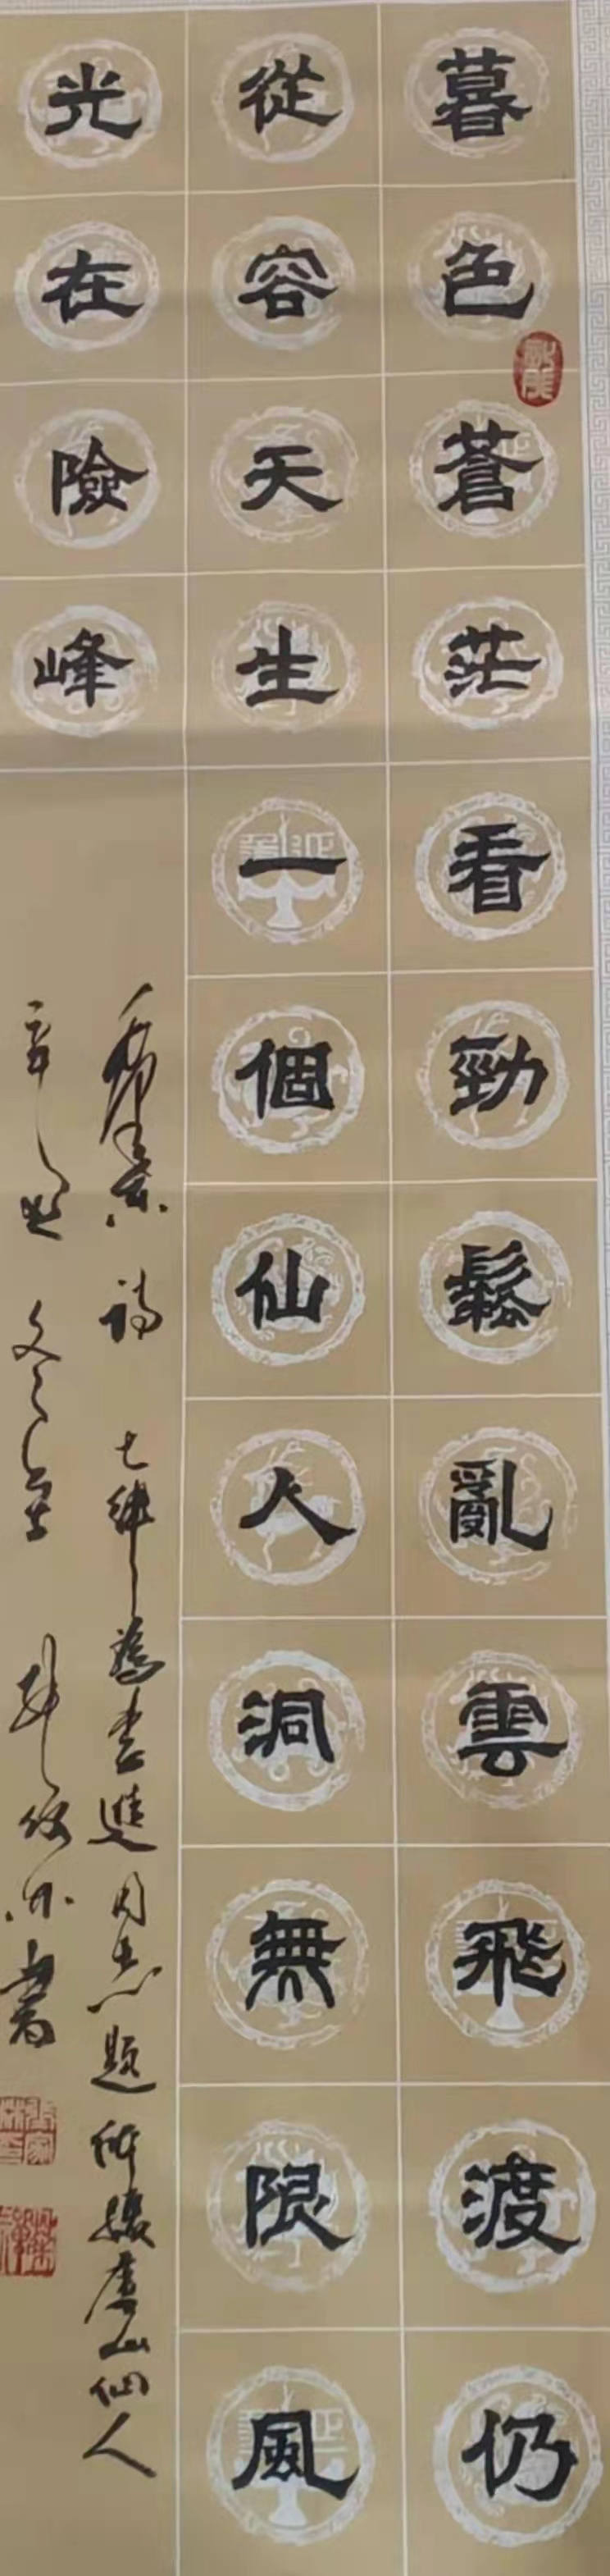 暮色蒼茫看勁鬆亂雲飛渡仍
從容天生一個仙人洞無限風
光在險峰
詩七律為李進同志題所攝廬山仙人
辛丑冬至 書